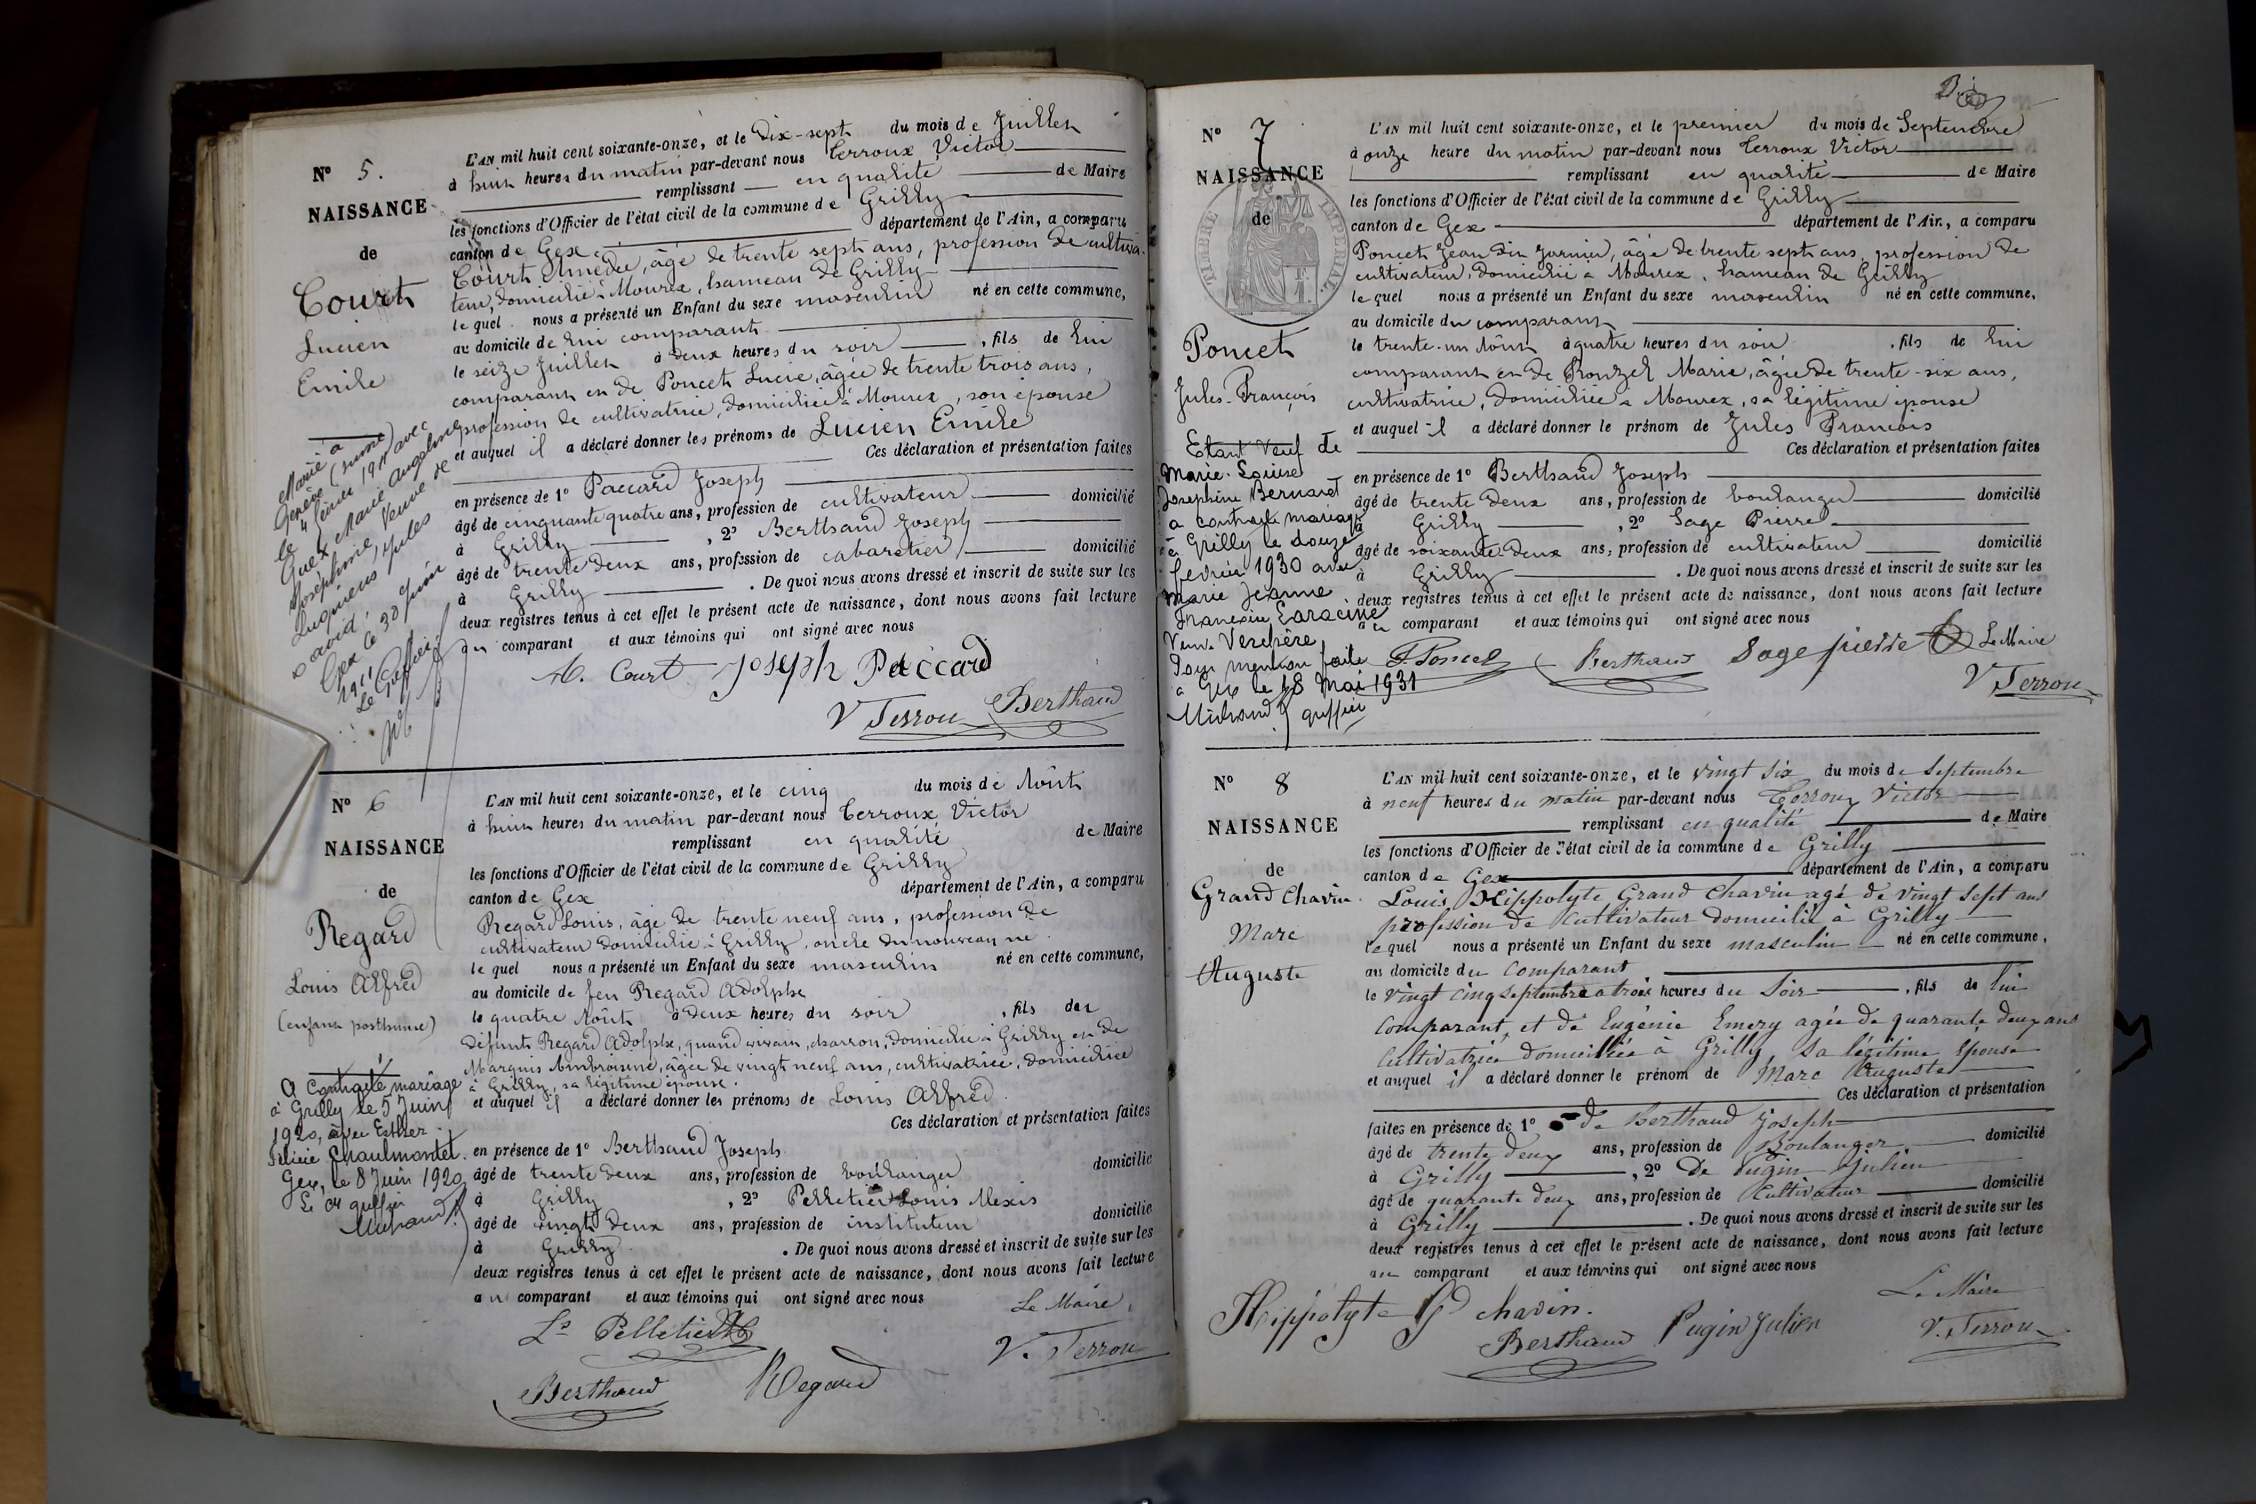 N° 5.
NAISSANCE
de
Court
Lucien
Emile
Marié à
Genève (Suisse)
le 4 février 1911 avec
Guex Marie Angeline
Joséphine, Veuve de
Jules
David.
Gex le 30 Juin
1911
Le Greffier
L'AN mil huit cent soixante-onze, et le Dix-sept du mois de Juillet
à huit heures du matin par-devant nous Terroux Victor
remplissant en qualité de Maire
les fonctions d'Officier de l'état civil de la commune de Grilly
canton de Gex département de l'Ain, a comparu
Court Amédée, âgé de trente sept ans, profession de cultiva-
teur, domicilié à Mourex, hameau de Grilly
le quel nous a présenté un Enfant du sexe masculin né en cette commune,
au domicile de lui comparant
le seize Juillet à deux heures du soir, fils de lui
comparant et de Poncet Lucie, âgée de trente trois ans,
profession de cultivatrice, domiciliée à Mourex, son épouse
et auquel il a déclaré donner les prénoms de Lucien Emile
Ces déclaration et présentation faites
en présence de 1° Paccard Joseph
âgé de cinquante quatre ans, profession de cultivateur domicilié
à Grilly, 2° Berthaud Joseph
âgé de trente deux ans, profession de cabaretier domicilié
à Grilly. De quoi nous avons dressé et inscrit de suite sur les
deux registres tenus à cet effet le présent acte de naissance, dont nous avons fait lecture
au comparant et aux témoins qui ont signé avec nous
A. Court Joseph Paccard
V Terroux Berthaud
N° 6
NAISSANCE
de
Regard
Louis Alfred
(enfant posthume)
a contracté mariage
à Grilly le 5 Juin
1920, avec Esther
Félicie Chaulmontet.
Gex, le 8 Juin 1920
Le greffier
Michaud
L'AN mil huit cent soixante-onze, et le cinq du mois de Août
à huit heures du matin par-devant nous Terroux Victor
remplissant en qualité de Maire
les fonctions d'Officier de l'état civil de la commune de Grilly
canton de Gex département de l'Ain, a comparu
Regard Louis, âgé de trente neuf ans, profession de
cultivateur domicilié à Grilly, oncle du nouveau né
le quel nous a présenté un Enfant du sexe masculin né en cette commune,
au domicile de feu Regard Adolphe
le quatre Août à deux heures du soir, fils de
défunt Regard Adolphe, quand vivait, charron, domicilié à Grilly et de
Marquis Ambroisine, âgée de vingt neuf ans, cultivatrice, domiciliée
à Grilly, sa légitime épouse.
et auquel il a déclaré donner les prénoms de Louis Alfred.
Ces déclaration et présentation faites
en présence de 1° Berthaud Joseph
âgé de trente deux ans, profession de boulanger domicilié
à Grilly, 2° Pelletier Louis Alexis
âgé de vingt deux ans, profession de instituteur domicilié
à Grilly. De quoi nous avons dressé et inscrit de suite sur les
deux registres tenus à cet effet le présent acte de naissance, dont nous avons fait lecture
au comparant et aux témoins qui ont signé avec nous
Le Maire,
Ls Pelletier
V. Terroux
Berthaud Regard
N° 7
NAISSANCE
de
TIMBRE IMPERIAL
Poncet
Jules-François
Etant Veuf de
Marie-Louise
Josephine Bernard
a contracté mariage
à Grilly le douze
février 1930 avec
Marie Jeanne
Françoise Laracine
Veuve Verchère
Dont mention faite
à Gex le 18 Mai 1931
Michaud greffier
L'AN mil huit cent soixante-onze, et le premier du mois de Septembre
à onze heure du matin par-devant nous Terroux Victor
remplissant en qualité de Maire
les fonctions d'Officier de l'état civil de la commune de Grilly
canton de Gex département de l'Ain, a comparu
Poncet Jean dit Jarnier, âgé de trente sept ans, profession de
cultivateur, domicilié à Mourex, hameau de Grilly
le quel nous a présenté un Enfant du sexe masculin né en cette commune,
au domicile du comparant
le trente-un Août à quatre heures du soir, fils de lui
comparant et de Ronzel Marie, âgée de trente-six ans,
cultivatrice, domiciliée à Mourex, sa légitime épouse
et auquel il a déclaré donner le prénom de Jules François
Ces déclaration et présentation faites
en présence de 1° Berthaud Joseph
âgé de trente deux ans, profession de boulanger domicilié
à Grilly, 2° Sage Pierre
âgé de soixante-deux ans, profession de cultivateur domicilié
à Grilly. De quoi nous avons dressé et inscrit de suite sur les
deux registres tenus à cet effet le présent acte de naissance, dont nous avons fait lecture
au comparant et aux témoins qui ont signé avec nous
J. Poncet Berthaud Sage pierre Le Maire
V Terroux
N° 8
NAISSANCE
de
Grand Chavin
Marc
Auguste
L'AN mil huit cent soixante-onze, et le vingt six du mois de Septembre
à neuf heures du matin par-devant nous Terroux Victor
remplissant en qualité de Maire
les fonctions d'Officier de l'état civil de la commune de Grilly
canton de Gex département de l'Ain, a comparu
Louis Hippolyte Grand Chavin agé de vingt sept ans
profession de Cultivateur domicilié à Grilly
le quel nous a présenté un Enfant du sexe masculin né en cette commune,
au domicile du comparant
le vingt cinq septembre a trois heures du Soir, fils de lui
Comparant, et de Eugénie Emery agée de quarante deux ans
Cultivatrice domiciliée à Grilly, sa légitime épouse
et auquel il a déclaré donner le prénom de Marc Auguste
Ces déclaration et présentation
faites en présence de 1° de Berthaud Joseph
âgé de trente deux ans, profession de Boulanger domicilié
à Grilly, 2° De Pugin Julien
âgé de quarante deux ans, profession de Cultivateur domicilié
à Grilly. De quoi nous avons dressé et inscrit de suite sur les
deux registres tenus à cet effet le présent acte de naissance, dont nous avons fait lecture
au comparant et aux témoins qui ont signé avec nous
Le Maire
Hippolyte Gd chavin.
Berthaud Pugin Julien V. Terroux